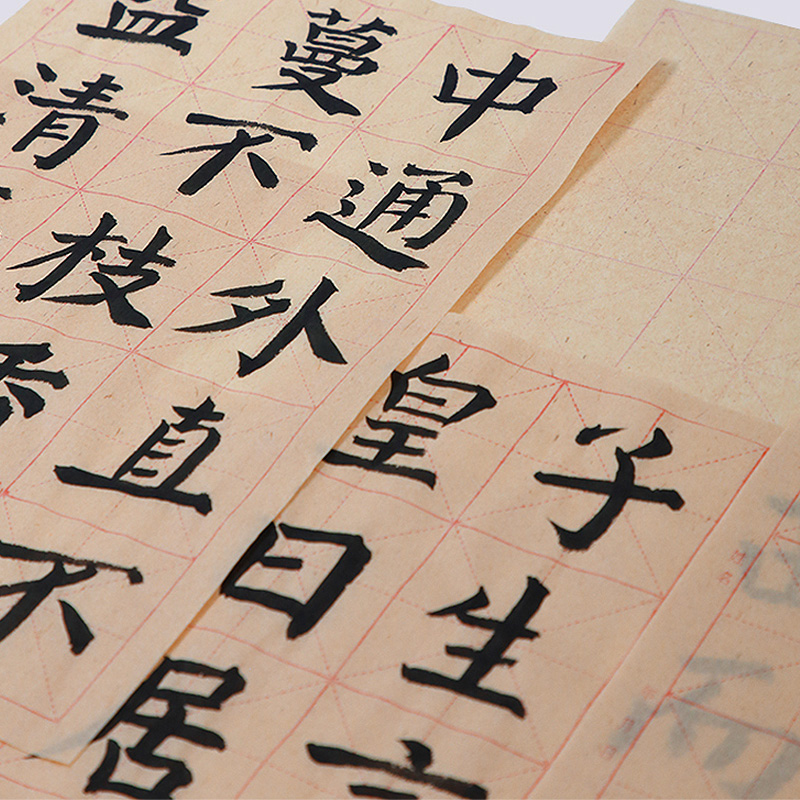 中通外直不
蔓不枝香
益清
子生
皇曰居